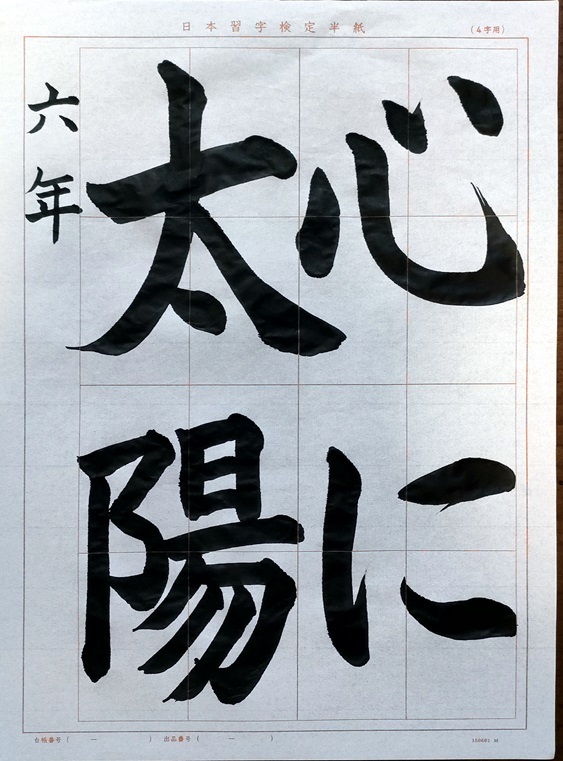 日本習字検定半紙
(4字用)
心に
太陽
六年
台帳番号( ー )
出品番号( ー )
110601 M